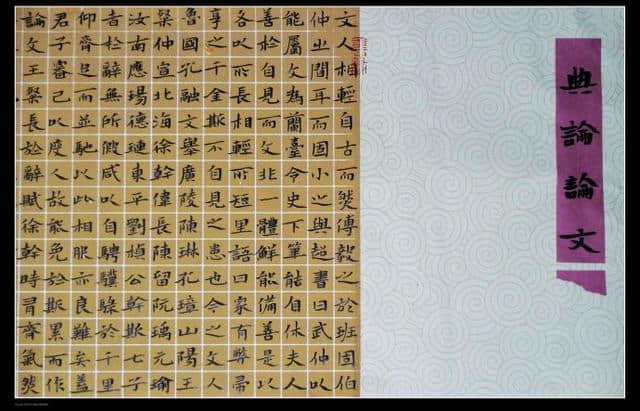 典論論文
文人相輕自古而然傅毅之於班固伯
仲之間耳而固小之與超書曰武仲以
能屬文為蘭臺令史下筆能自休夫人
善於自見而文非一體鮮能備善是以
各以所長相輕所短里語曰家有弊帚
享之千金斯不自見之患也今之文人
魯國孔融文舉廣陵陳琳孔璋山陽王
粲仲宣北海徐幹偉長陳留阮瑀元瑜
汝南應瑒德璉東平劉楨公幹斯七子
者於辭無所假咸以自騁驥騄於千里
仰齊足而並馳以此相服亦良難矣蓋
君子審己以度人故能免於斯累而作
論文王粲長於辭賦徐幹時有齊氣然